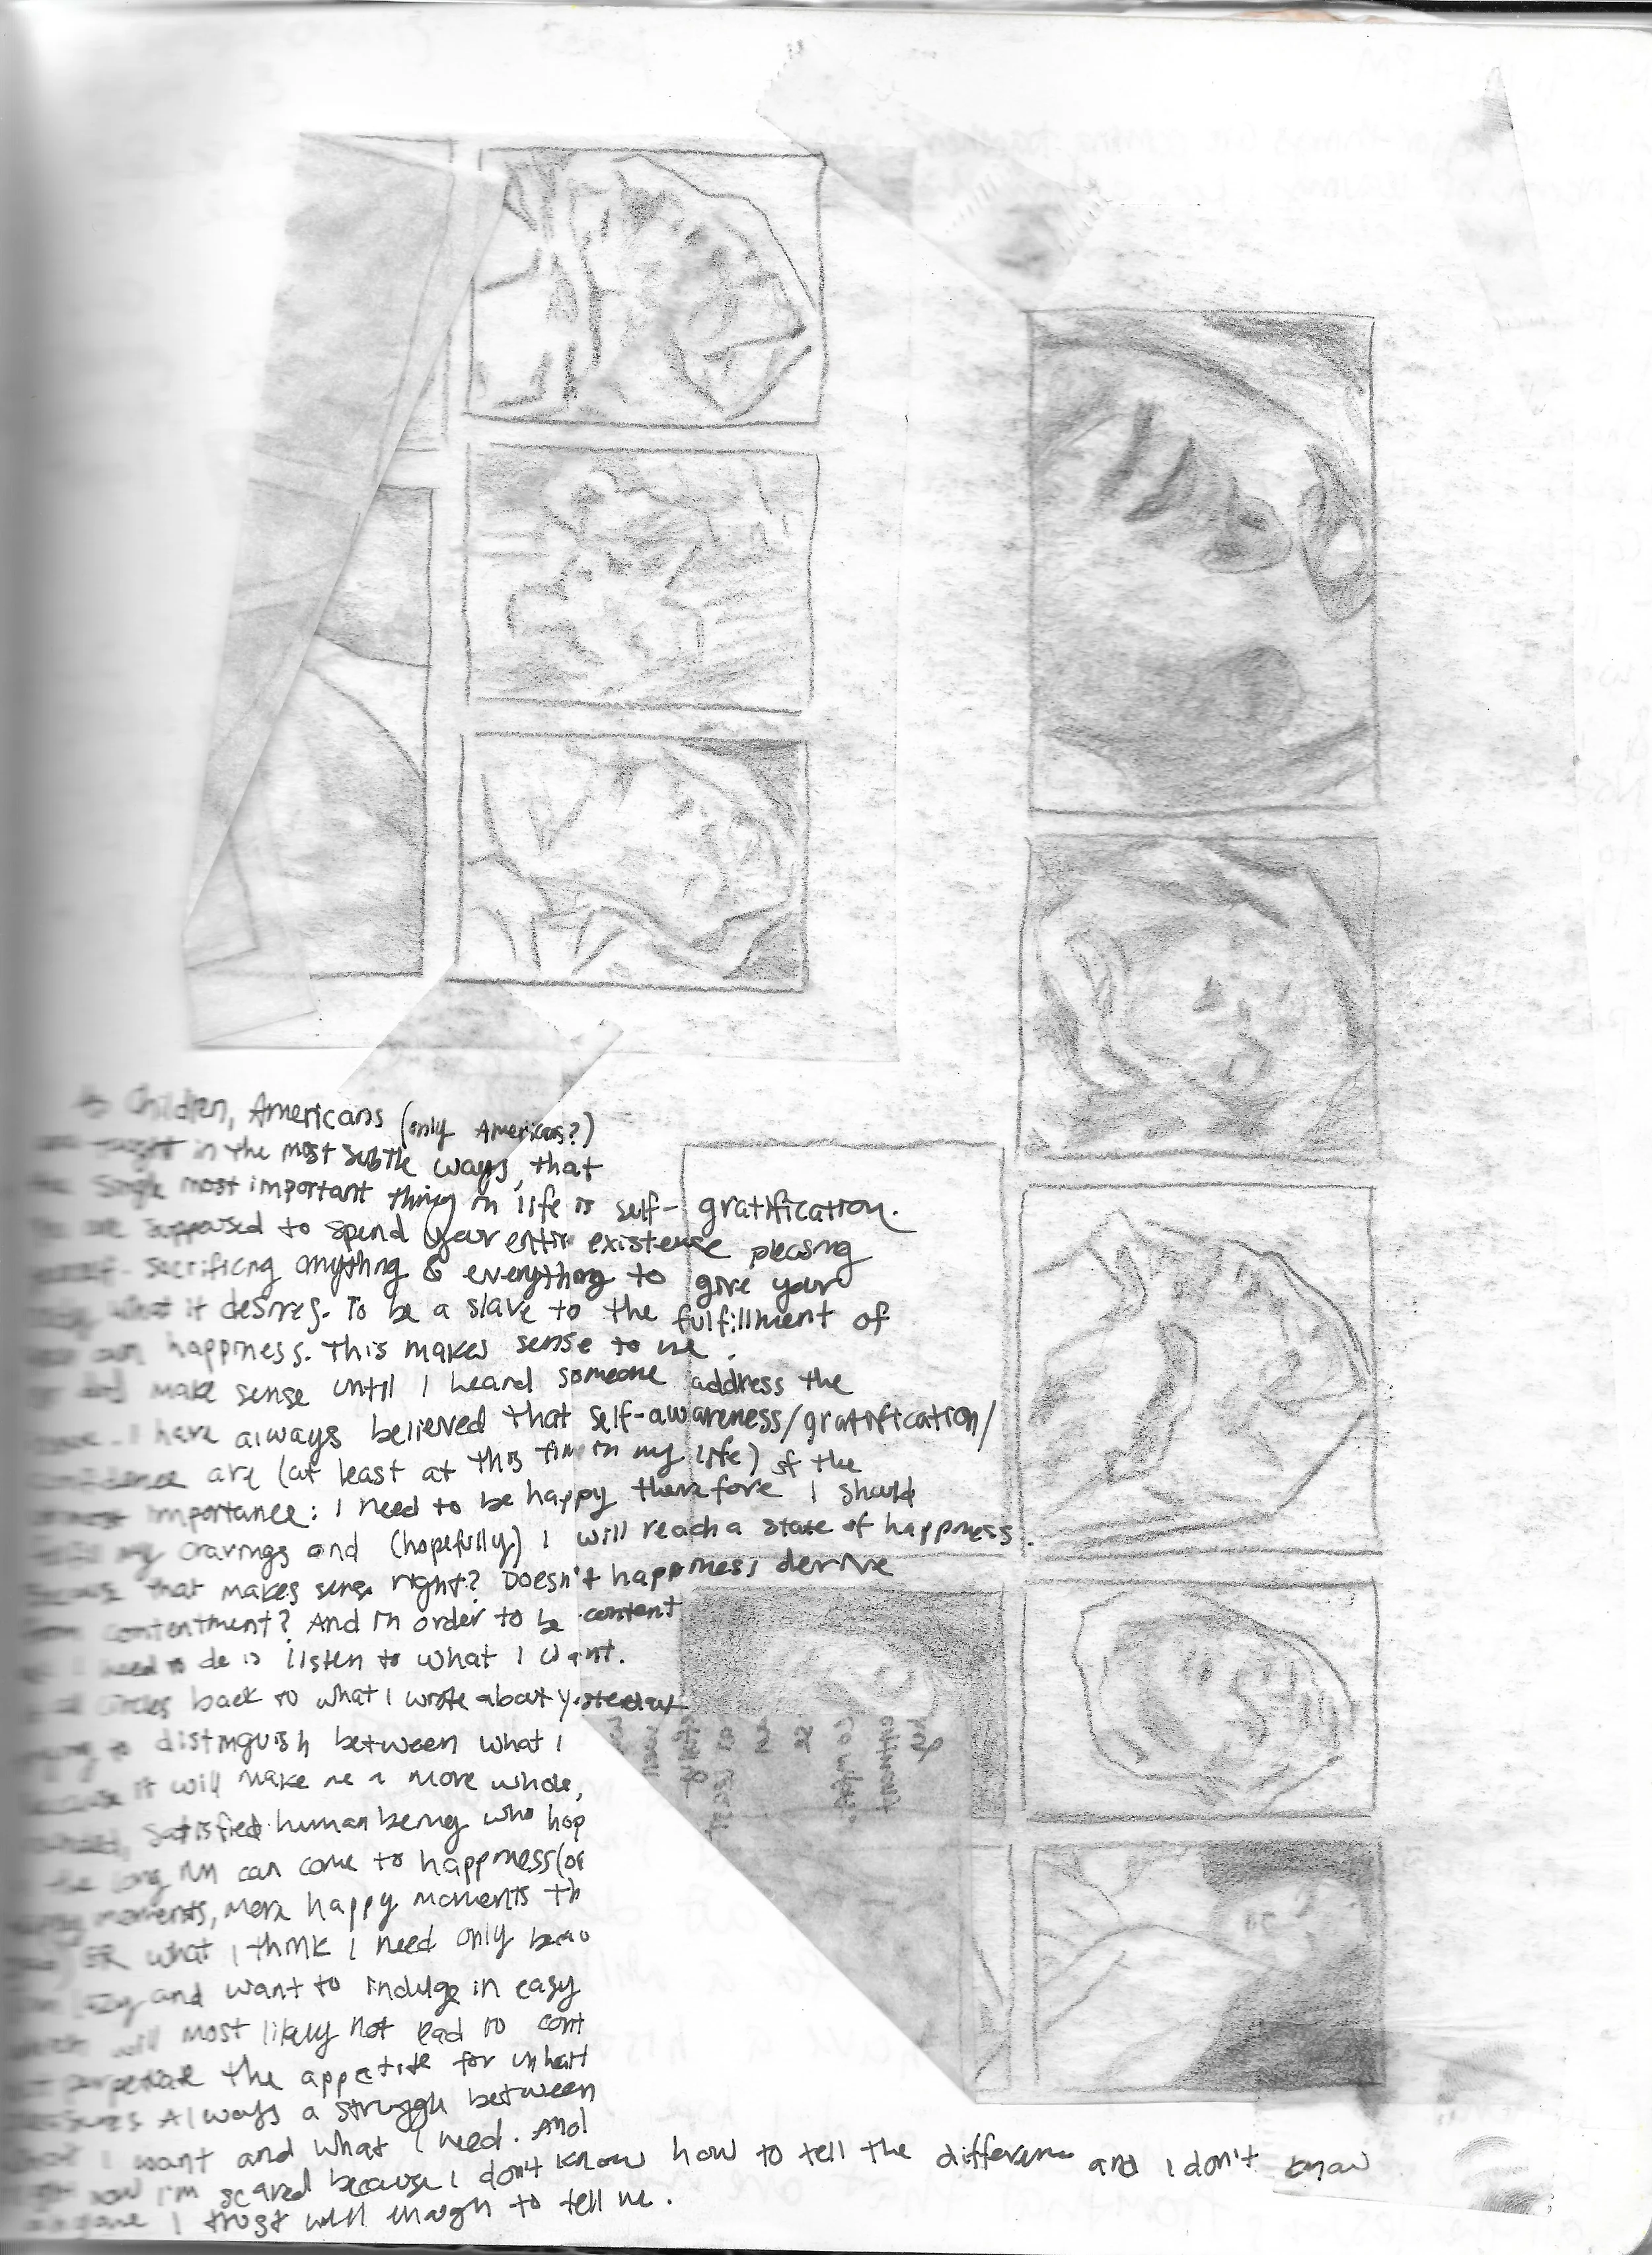 Children, Americans (only Americans?)
taught in the most subtle ways, that
the single most important thing in life is self-gratification.
You are supposed to spend your entire existense pleasing
yourself - sacrificing anything & everything to give your
what it desires. To be a slave to the fulfillment of
your own happiness. This makes sense to me.
make sense until I heard someone address the
I have always believed that self-awareness/gratification/
confidence are (at least at this time in my life) of the
utmost importance: I need to be happy therefore I should
fulfill my cravings and (hopefully) I will reach a state of happiness.
Because that makes sense right? Doesn't happiness derive
from contentment? And in order to be content
all I need to do is listen to what I want.
all circles back to what I wrote about yesterday
trying to distinguish between what I
because it will make me a more whole,
satisfied human being who hop
the long run can come to happiness (or
moments, more happy moments th
OR what I think I need only
lazy and want to indulge in easy
which will most likely not lead to cont
perpetuate the appetite for
pleasures Always a struggle between
what I want and what I need. And
right now I'm scared because I don't know how to tell the difference and I don't know
anyone I trust well enough to tell me.